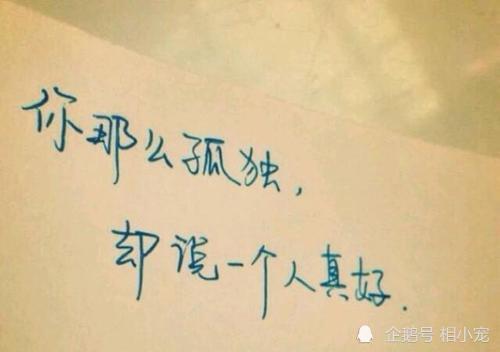 你那么孤独,
却说一个人真好.
企鹅号 相小宠